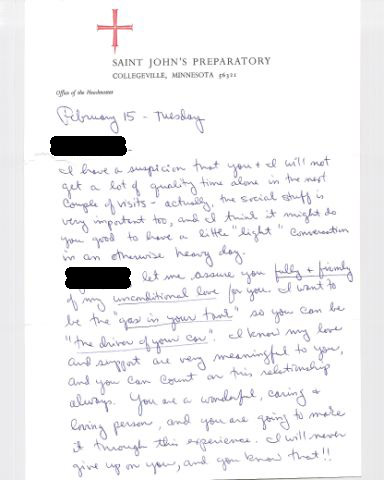 SAINT JOHN'S PREPARATORY
COLLEGEVILLE, MINNESOTA 56321
Office of the Headmaster
February 15 - Tuesday
I have a suspicion that you & I will not
get a lot of quality time alone in the next
couple of visits - actually, the social stuff is
very important too, and I think it might do
you good to have a little "light" conversation
in an otherwise heavy day.
let me assure you fully & firmly
of my unconditional love for you. I want to
be the "gas in your tank" so you can be
"the driver of your car". I know my love
and support are very meaningful to you,
and you can count on this relationship
always. You are a wonderful, caring &
loving person, and you are going to make
it through this experience. I will never
give up on you, and you know that!!